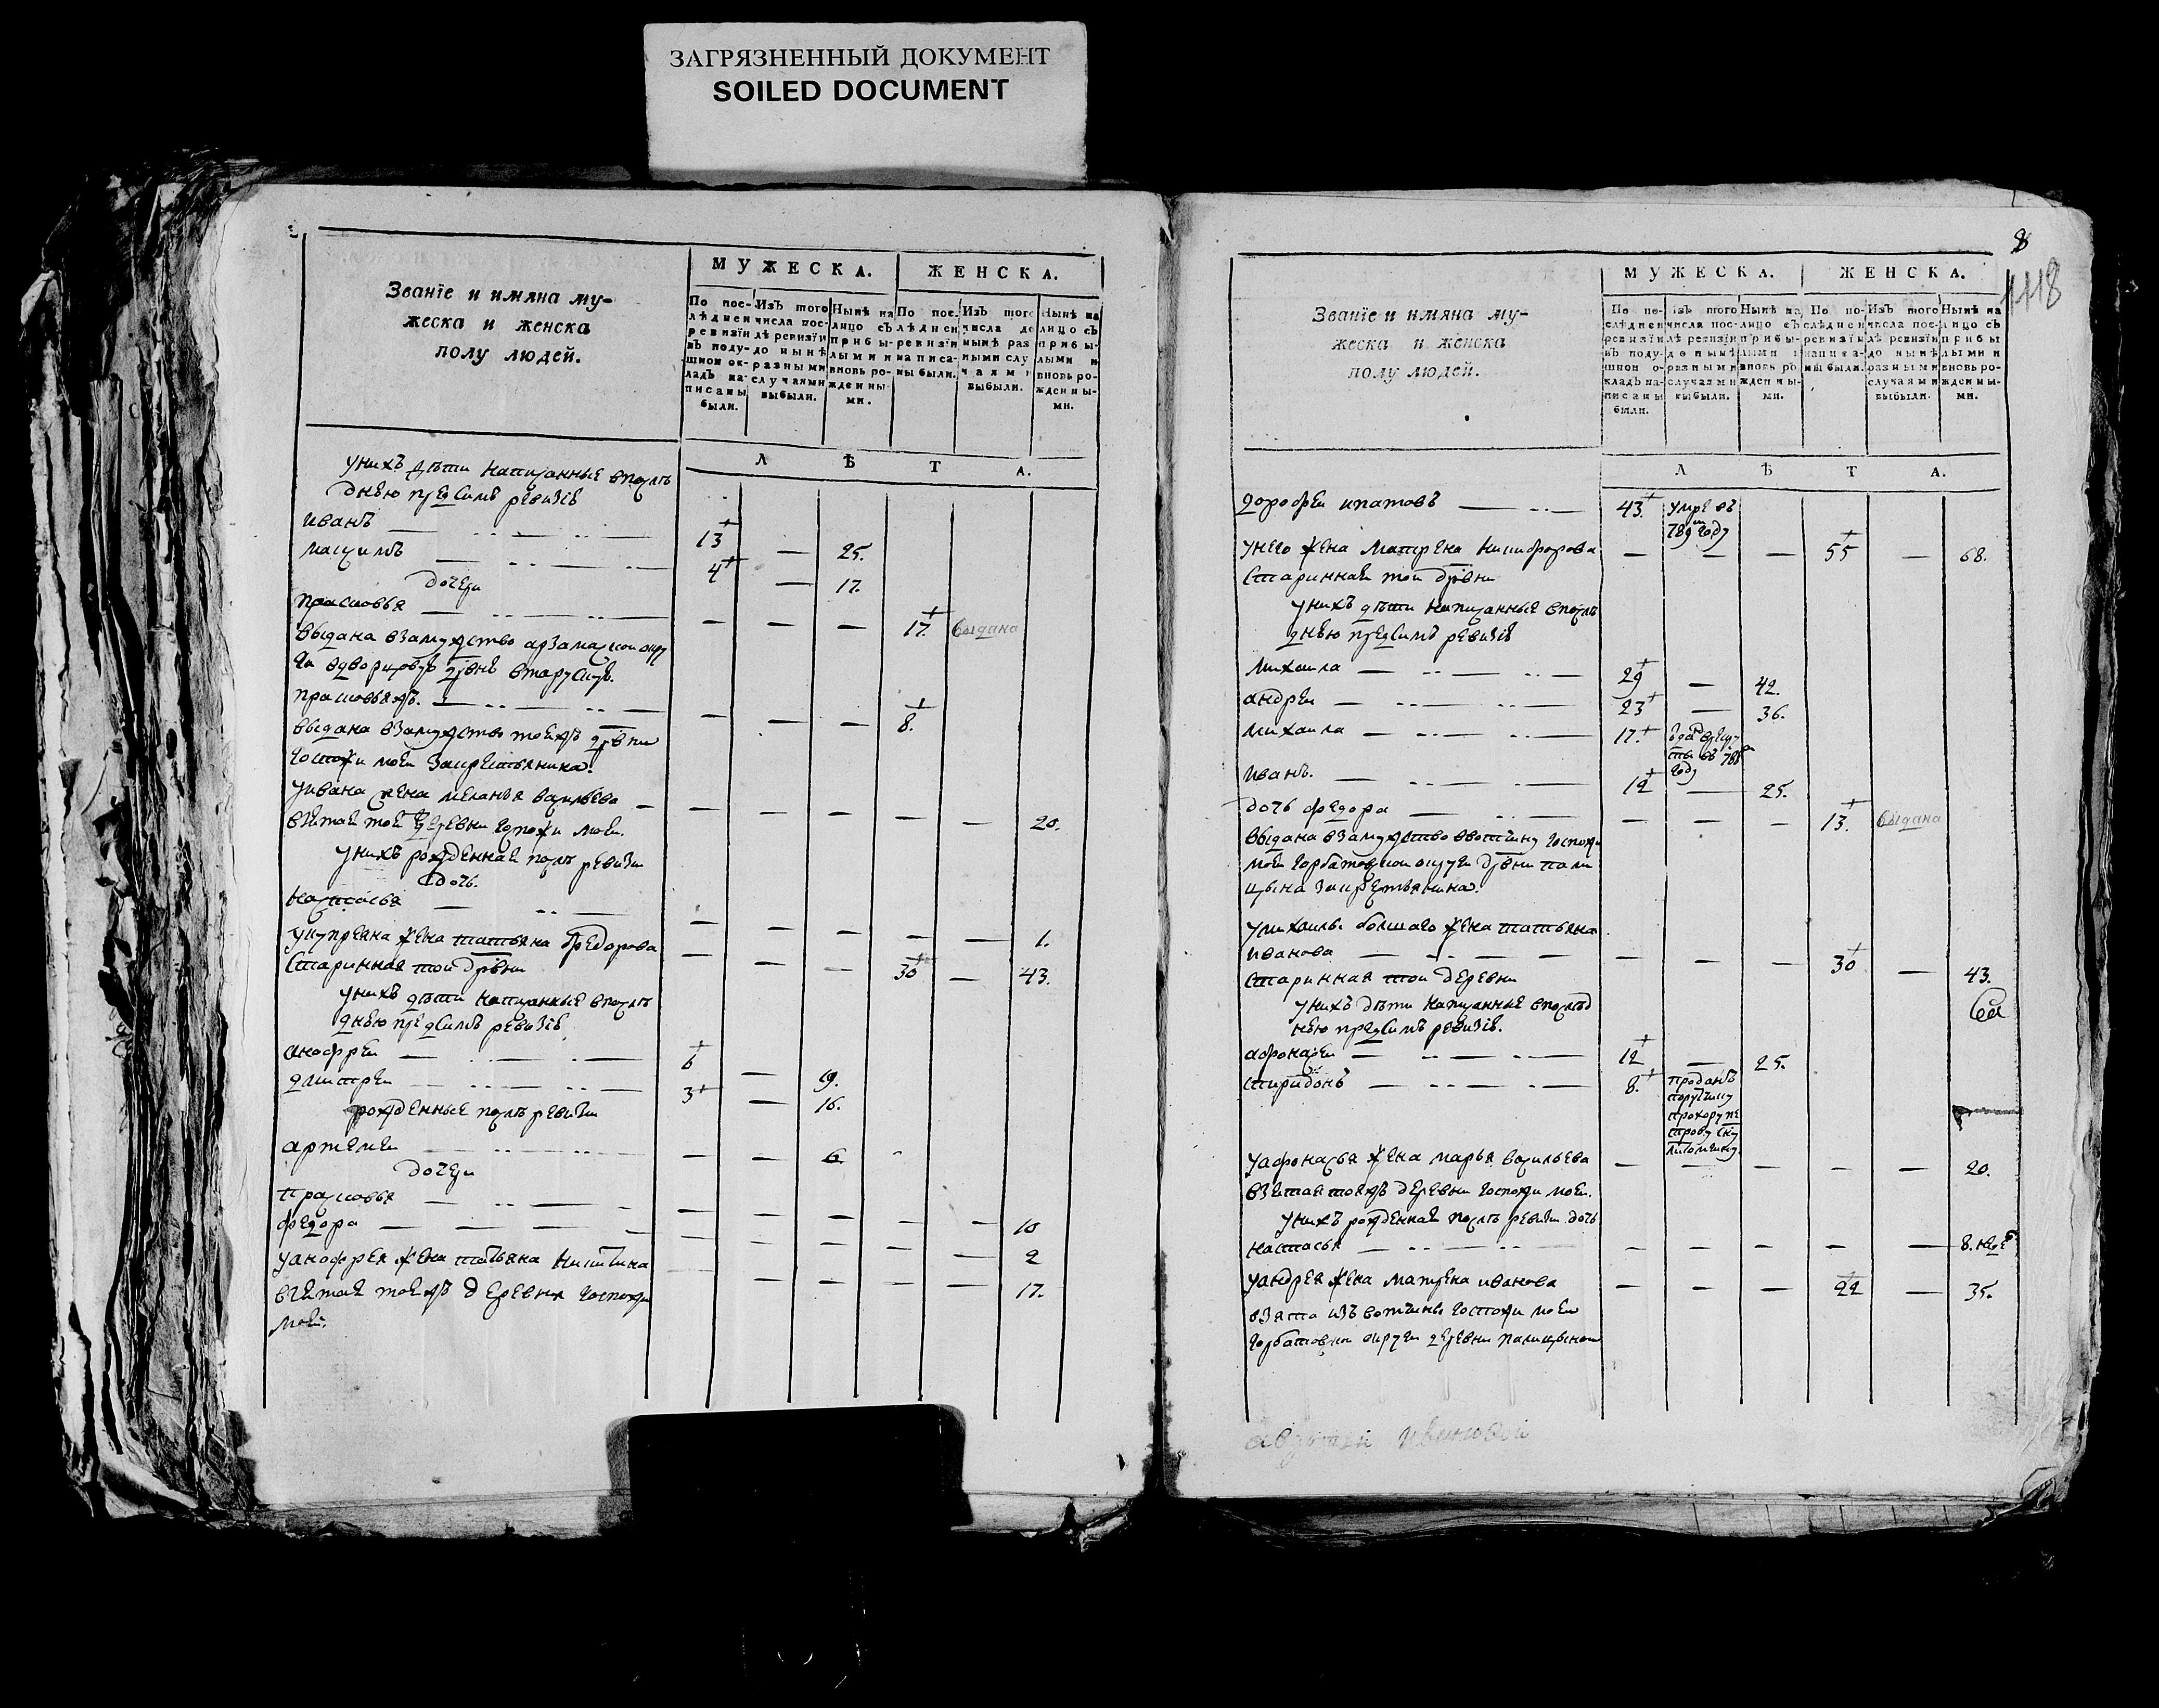 ЗАГРЯЗНЕННЫЙ ДОКУМЕНТ
SOILED DOCUMENT
Званїе и имяна му-
жеска и женска
полу людей.
МУЖЕСКА.
ЖЕНСКА.
По послѣдней ревизїи въ подушной окладъ написаны были.
Изъ того числа послѣ ревизїи до нынѣ разными случаями выбыли.
Нынѣ на лицо съ прибылыми и вновь рожденными.
По послѣдней ревизїи написаны были.
Изъ того числа до нынѣ разными случаями выбыли.
Нынѣ на лицо съ прибылыми и вновь рожденными.
ЛѢТА.
унихъ дѣти написанные впослѣ
днею предсимъ ревизїе
иванъ 13 — 25.
максимъ 4 — 17.
дочери
прасковья — — — 17. выдана
выдана взамужство арзамаскои окру
прасковьяжъ. — — — 8.
выдана взамужство тоежъ дрвни
госпожи моеи закрестьянина.
уивана жена меланья васильева — — — — — 20.
взетая тои деревни гспожи моеи.
унихъ рожденная послѣ ревизи
дочь.
настасья — — — — — 1.
укупреяна жена татьяна федорова — — — 30 — 43.
старинная тои дрвни
унихъ дѣти написанные впослѣ
днею предсимъ ревизїе
анофреи 6 — 19.
дмитреи 3 — 16.
рожденные послѣ ревизи
артемеи — — 6.
дочери
прасковья — — — — — 10
федора — — — — — 2
уанофрея жена татьяна никитина — — — — — 17.
взетая тоежъ деревни госпожи
моеи.
8
1118
Званїе и имяна му-
жеска и женска
полу людей.
МУЖЕСКА.
ЖЕНСКА.
По послѣдней ревизїи въ подушной окладъ написаны были.
Изъ того числа послѣ ревизїи до нынѣ разными случаями выбыли.
Нынѣ на лицо съ прибылыми и вновь рожденными.
По послѣдней ревизїи написаны были.
Изъ того числа послѣ ревизїи до нынѣ разными случаями выбыли.
Нынѣ на лицо съ прибылыми и вновь рожденными.
ЛѢТА.
дорофеи ипатовъ 43. умре въ
789м году
унего жена матрена никифорова — — — 55 — 68.
старинная тои дрвни
унихъ дѣти написанные впослѣ
днею предсимъ ревизїе
михаила 29 — 42.
андреи 23 — 36.
михаила 17. въ 788м
году
иванъ. 12 — 25.
дочь федора — — — 13. выдана
выдана взамужство ввотчину госпожи
моеи горбатовскои округи дрвни пали
цына закрестьянина.
умихаилы болшаго жена татьяна
иванова — — — 30 — 43.
старинная тои деревни
унихъ дѣти написанные впослѣд
нею предсимъ ревизїе.
афонасеи 12 — 25.
спиридонъ 8. проданъ
порутчику
прохору пе
трову сну
уафонасья жена марья васильева — — — — — 20.
взетая тояжъ деревни госпожи моеи.
унихъ рожденная послѣ ревизи дочь
настасья — — — — — 8. недѣ
уандрея жена матрена иванова — — — 22 — 35.
взята изъ вотчины госпожи моеи
горбатовскои округи деревни палицынои